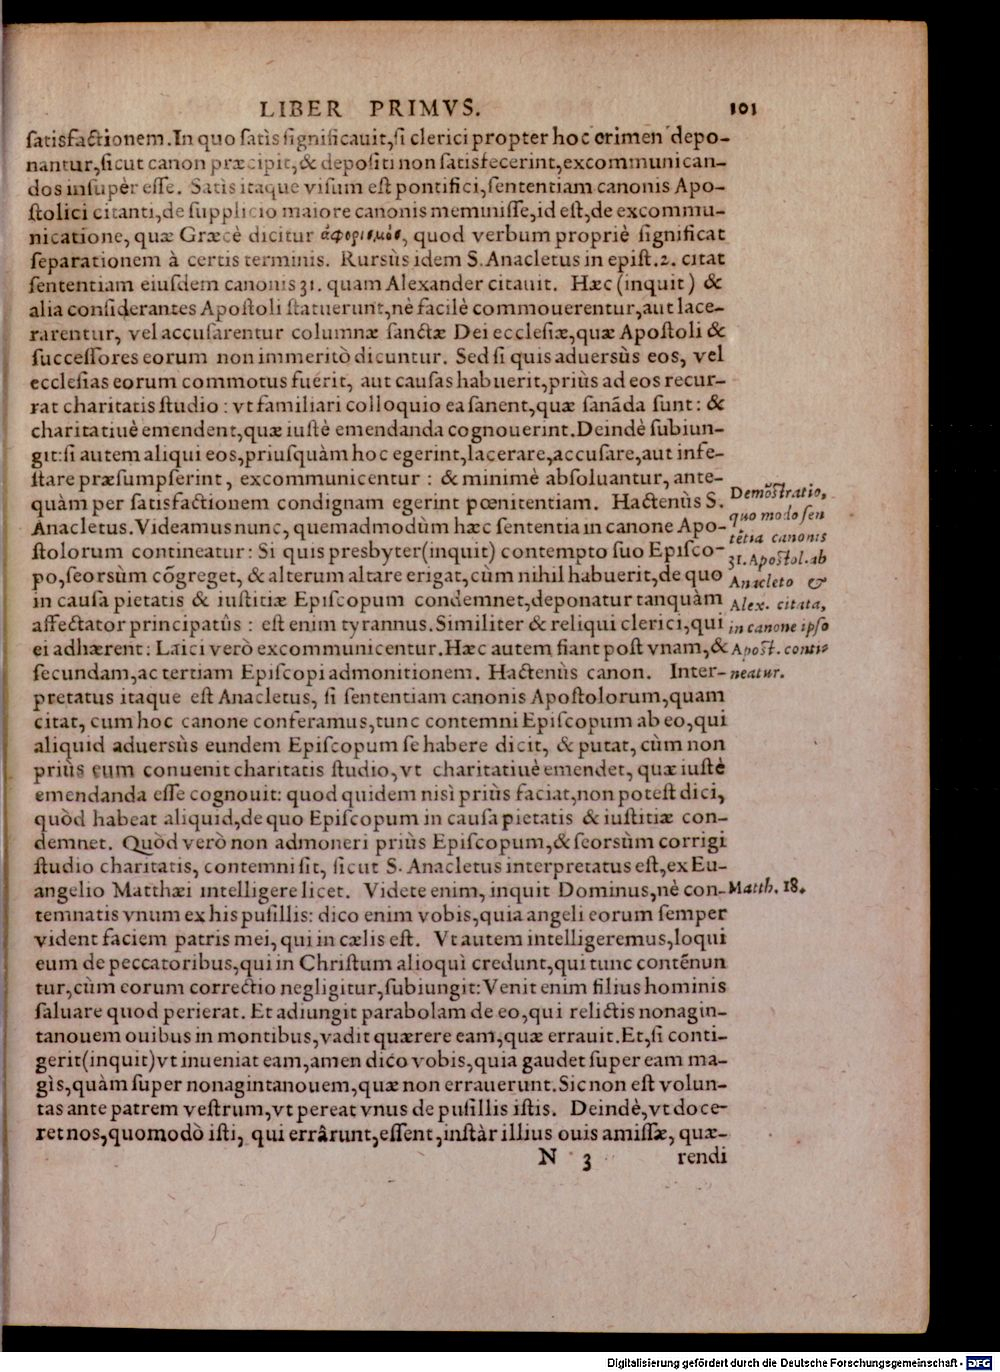 LIBER PRIMVS. 101
ſatisfactionem.In quo ſatìs ſignificauit,ſi clerici propter hoc crimen depo-
nantur,ſicut canon præcipit,& depoſiti non ſatisfecerint,excommunican-
dos inſupèr eſſe. Satis itaque viſum eſt pontifici,ſententiam canonis Apo-
ſtolici citanti,de ſupplicio maiore canonis meminiſſe,id eſt,de excommu-
nicatione, quæ Græcè dicitur ἀφορισμὸς, quod verbum propriè ſignificat
ſeparationem à certis terminis. Rursùs idem S.Anacletus in epiſt.2. citat
ſententiam eiuſdem canonis 31. quam Alexander citauit. Hæc (inquit) &
alia conſiderantes Apoſtoli ſtatuerunt,nè facilè commouerentur,aut lace-
rarentur, vel accuſarentur columnæ ſanctæ Dei eccleſiæ,quæ Apoſtoli &
ſucceſſores eorum non immeritò dicuntur. Sed ſi quis aduersùs eos, vel
eccleſias eorum commotus fuerit, aut cauſas habuerit,priùs ad eos recur-
rat charitatis ſtudio : vt familiari colloquio ea ſanent,quæ ſanāda ſunt: &
charitatiuè emendent,quæ iuſtè emendanda cognouerint.Deindè ſubiun-
git:ſi autem aliqui eos,priuſquàm hoc egerint,lacerare,accuſare,aut infe-
ſtare præſumpſerint, excommunicentur : & minimè abſoluantur, ante-
quàm per ſatisfactionem condignam egerint pœnitentiam. Hactenùs S.
Anacletus.Videamus nunc, quemadmodùm hæc ſententia in canone Apo-
ſtolorum contineatur: Si quis presbyter(inquit) contempto ſuo Epiſco-
po,ſeorsùm cōgreget, & alterum altare erigat,cùm nihil habuerit,de quo
in cauſa pietatis & iuſtitiæ Epiſcopum condemnet,deponatur tanquàm
affectator principatûs : eſt enim tyrannus.Similiter & reliqui clerici,qui
ei adhærent: Laici verò excommunicentur.Hæc autem fiant poſt vnam,&
ſecundam,ac tertiam Epiſcopi admonitionem. Hactenùs canon. Inter-
pretatus itaque eſt Anacletus, ſi ſententiam canonis Apoſtolorum,quam
citat, cum hoc canone conferamus,tunc contemni Epiſcopum ab eo,qui
aliquid aduersùs eundem Epiſcopum ſe habere dicit, & putat, cùm non
priùs eum conuenit charitatis ſtudio,vt charitatiuè emendet, quæ iuſtè
emendanda eſſe cognouit: quod quidem nisì priùs faciat,non poteſt dici,
quòd habeat aliquid,de quo Epiſcopum in cauſa pietatis & iuſtitiæ con-
demnet. Quòd verò non admoneri priùs Epiſcopum,& ſeorsùm corrigi
ſtudio charitatis, contemni ſit, ſicut S. Anacletus interpretatus eſt,ex Eu-
angelio Matthæi intelligere licet. Videte enim, inquit Dominus,nè con-
temnatis vnum ex his puſillis: dico enim vobis,quia angeli eorum ſemper
vident faciem patris mei, qui in cælis eſt. Vt autem intelligeremus,loqui
eum de peccatoribus,qui in Chriſtum alioquì credunt,qui tunc contēnun
tur,cùm eorum correctio negligitur,ſubiungit:Venit enim filius hominis
ſaluare quod perierat. Et adiungit parabolam de eo,qui relictis nonagin-
tanouem ouibus in montibus,vadit quærere eam,quæ errauit.Et,ſi conti-
gerit(inquit)vt inueniat eam,amen dico vobis,quia gaudet ſuper eam ma-
gìs,quàm ſuper nonagintanouem,quæ non errauerunt.Sic non eſt volun-
tas ante patrem veſtrum,vt pereat vnus de puſillis iſtis. Deindè,vt doce-
ret nos,quomodò iſti, qui errârunt,eſſent,inſtàr illius ouis amiſſæ, quæ-
N 3 rendi
Demōſtratio,
quo modo ſen
tētia canonis
31. Apoſtol.ab
Anacleto &
Alex. citata,
in canone ipſo
Apoſt. conti-
neatur.
Matth. 18.
Digitalisierung gefördert durch die Deutsche Forschungsgemeinschaft - DFG